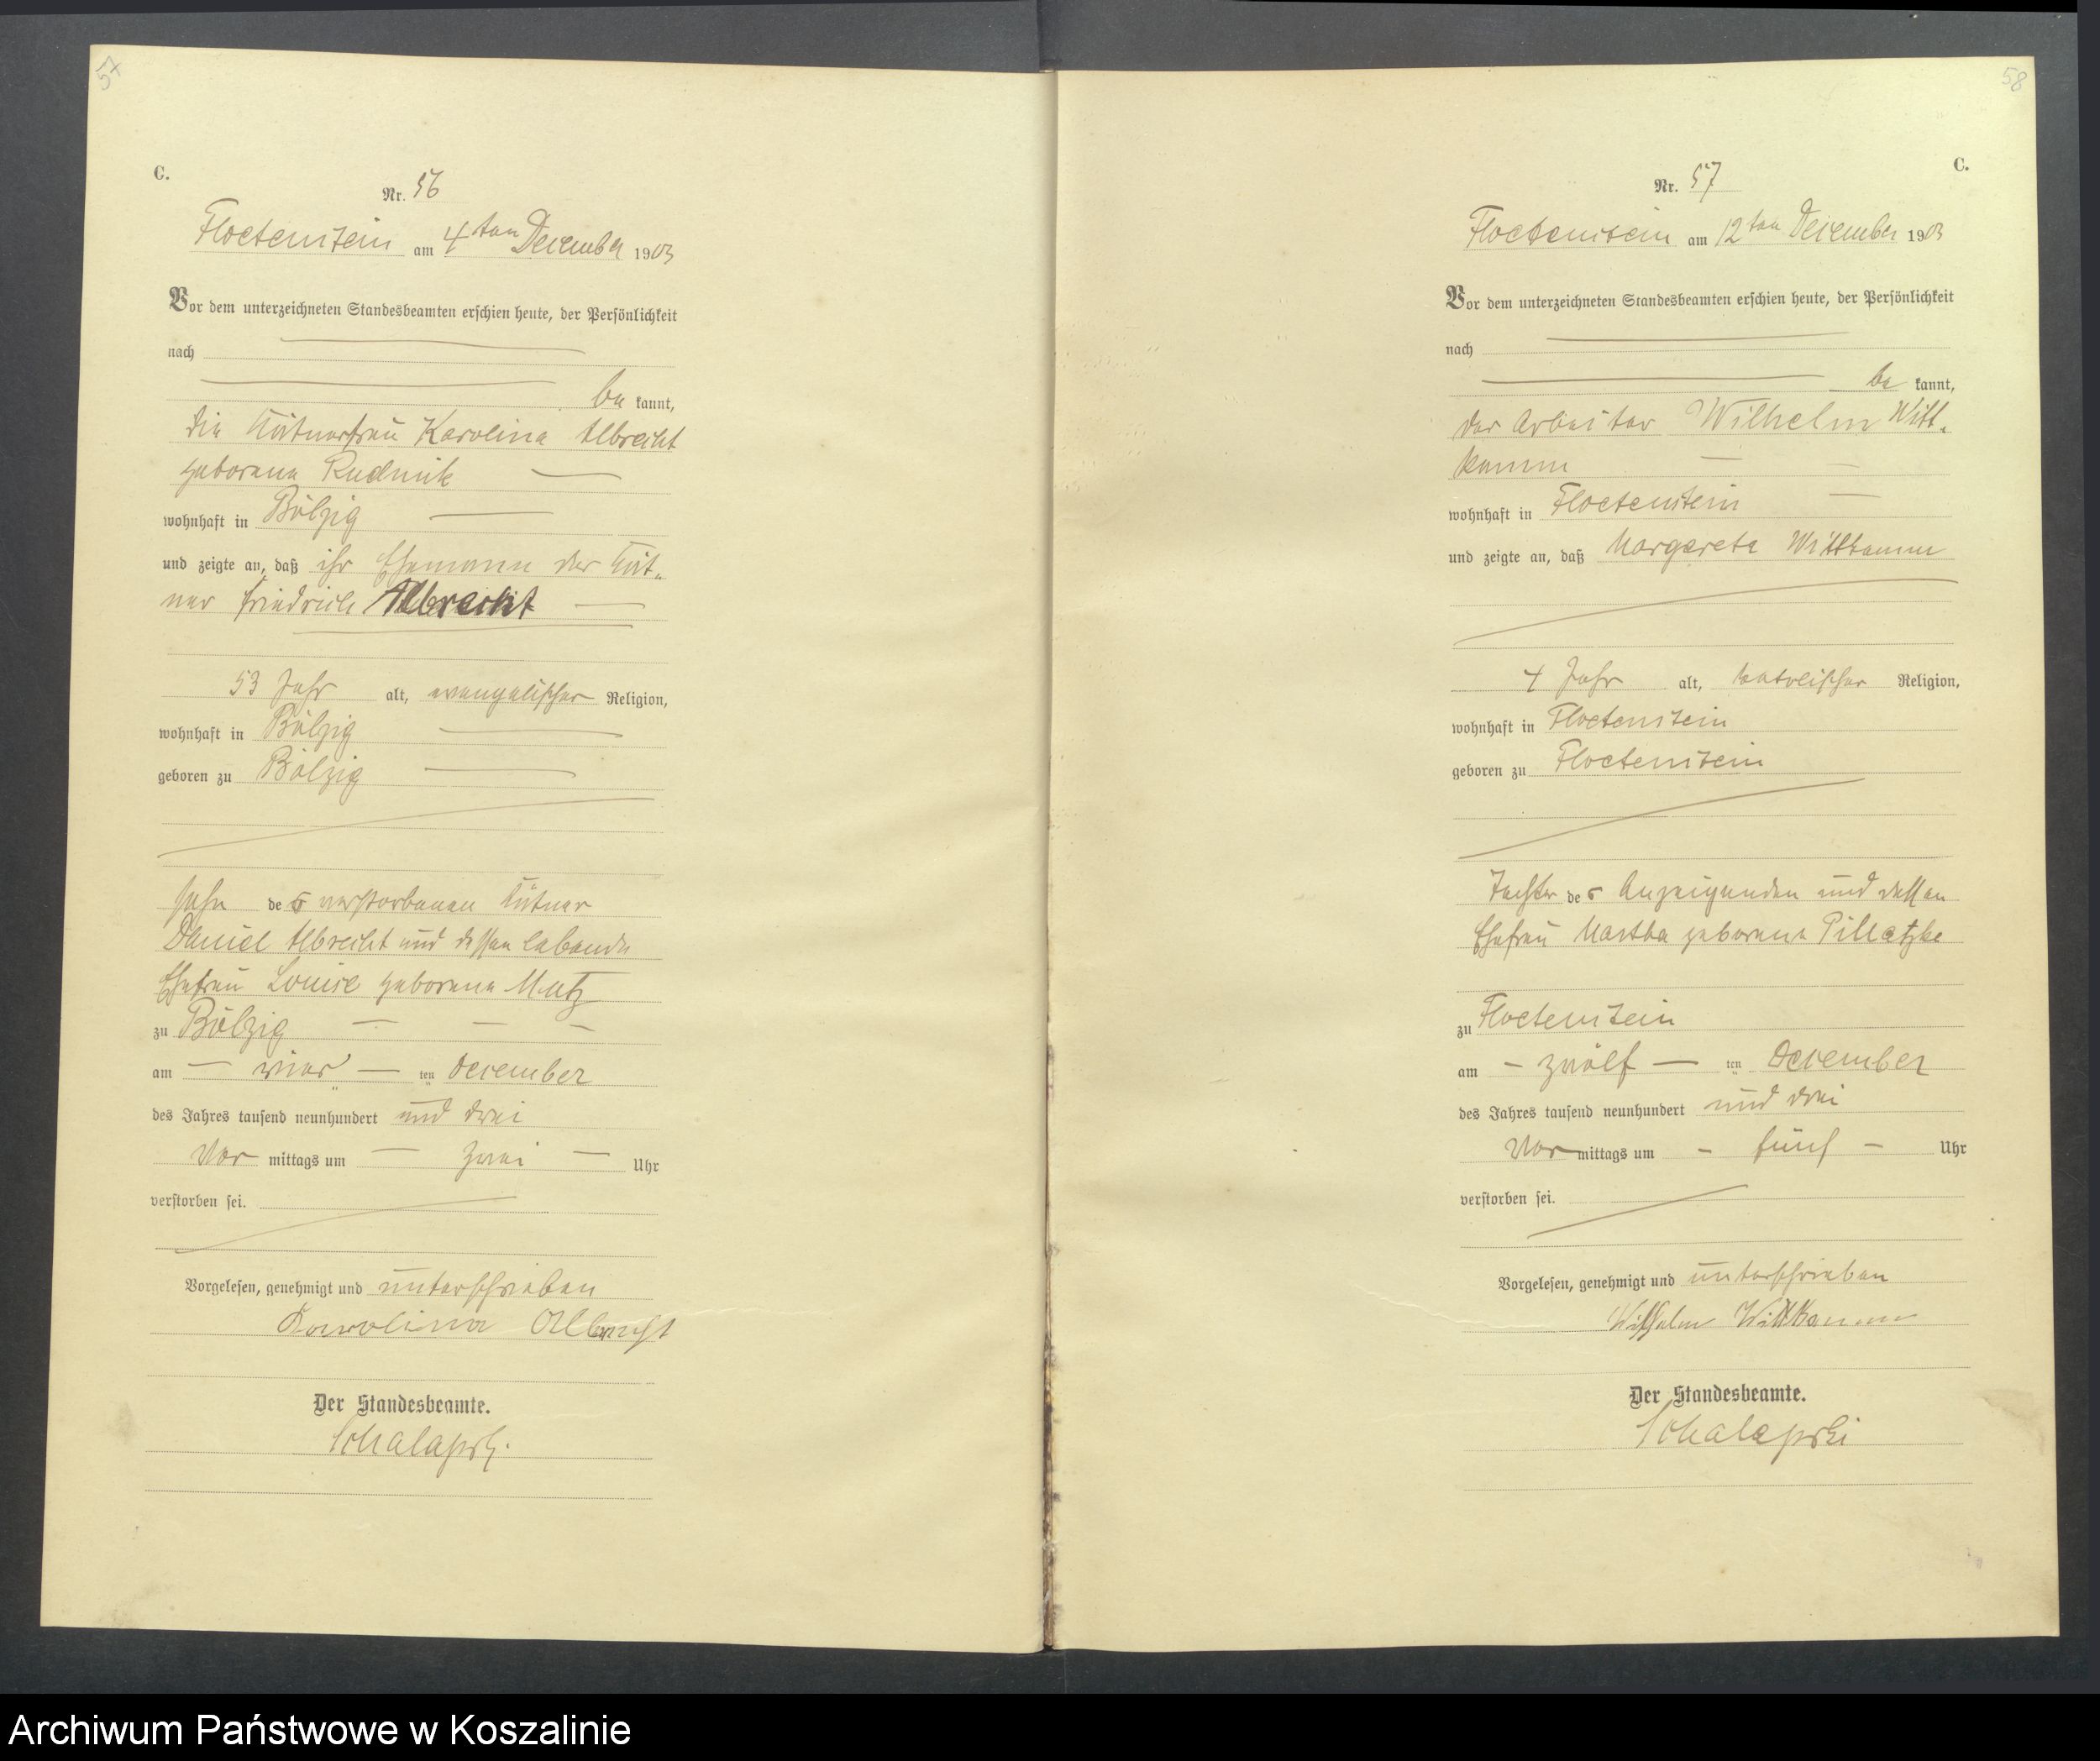 57
C.
Nr. 56
Floetenstein am 4ten December 1903
Vor dem unterzeichneten Standesbeamten erschien heute, der Persönlichkeit
nach
be kannt,
die Kätnerfrau Karolina Albrecht
geborene Rudnik
wohnhaft in Bölzig
und zeigte an, daß ihr Ehemann der Kät-
ner Friedrich Albrecht
53 Jahr alt, evangelischer Religion,
wohnhaft in Bölzig
geboren zu Bölzig
Sohn des verstorbenen Kätner
Daniel Albrecht und dessen lebende
Ehefrau Louise geborene Mutz
zu Bölzig
am vier ten December
des Jahres tausend neunhundert und drei
Vor mittags um zwei Uhr
verstorben sei.
Vorgelesen, genehmigt und unterschrieben
Karolina Albrecht
Der Standesbeamte.
Schalapski
58
C.
Nr. 57
Floetenstein am 12ten December 1903
Vor dem unterzeichneten Standesbeamten erschien heute, der Persönlichkeit
nach
be kannt,
der Arbeiter Wilhelm Witt-
kamm
wohnhaft in Floetenstein
und zeigte an, daß Margareta Wittkamm
4 Jahr alt, katolischer Religion,
wohnhaft in Floetenstein
geboren zu Floetenstein
Tochter des Anzeigenden und dessen
Ehefrau Martha geborene Pillatzke
zu Floetenstein
am zwölf ten December
des Jahres tausend neunhundert und drei
Vor mittags um fünf Uhr
verstorben sei.
Vorgelesen, genehmigt und unterschrieben
Wilhelm Wittkamm
Der Standesbeamte.
Schalapski
Archiwum Państwowe w Koszalinie